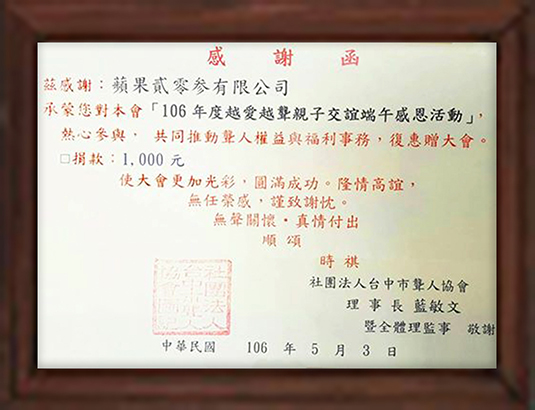 感謝函
茲感謝：蘋果貳零参有限公司
承榮您對本會「106年度越愛越聲親子交誼端午感恩活動」，
熱心參與，共同推動聾人權益與福利事務，復惠贈大會。
□捐款：1,000元
使大會更加光彩，圓滿成功。隆情高誼，
無任榮感，謹致謝忱。
無聲關懷·真情付出
順頌
時祺
社團法人台中市聾人協會
理事長 藍敏文
暨全體理監事 敬謝
中華民國 106 年 5 月 3 日